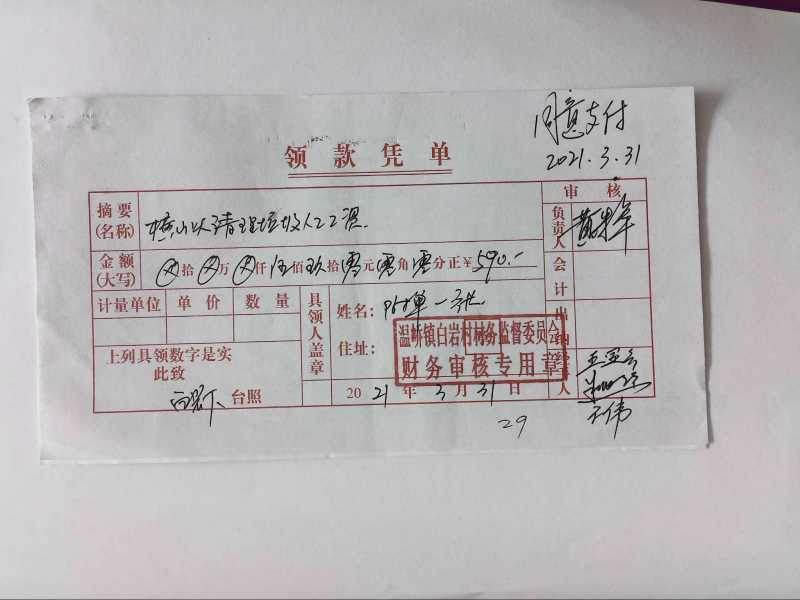 同意支付
2021.3.31
领款凭单
摘要(名称) 清理垃圾人工
审核
负责人 黄
金额(大写) ⊗拾⊗万⊗仟伍佰玖拾零元零角零分正¥590.-
会计
计量单位 单价 数量
具领人盖章
姓名: 附单一张
住址:
出纳
温峤镇白岩村村务监督委员会
财务审核专用章
上列具领数字是实
此致
台照
2021年3月31日
人 王伟
29